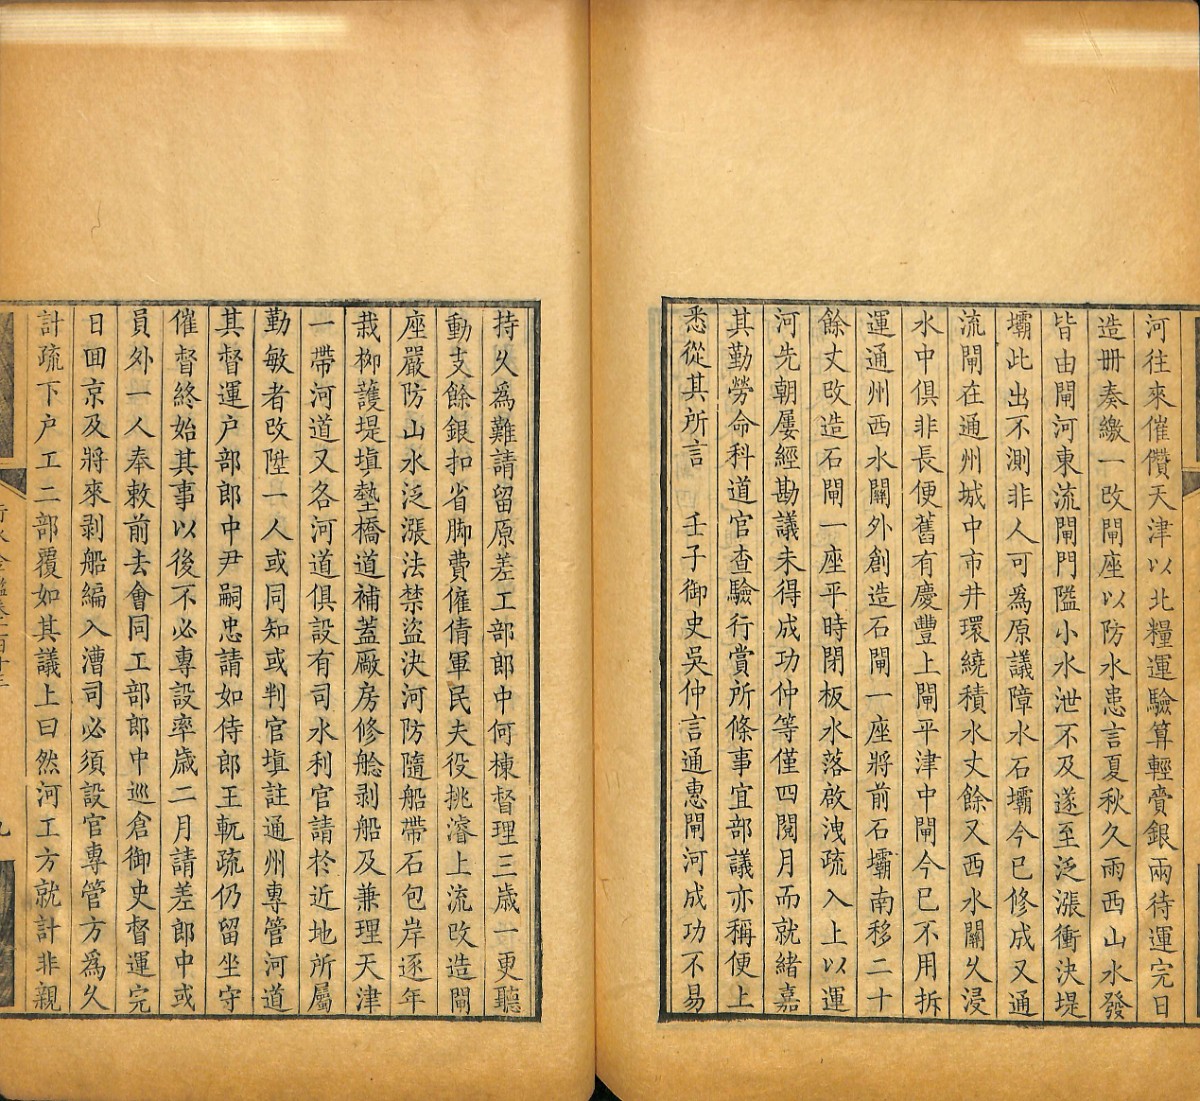 河往來催儹天津以北糧運驗算輕賫銀兩待運完日
造冊奏繳一改閘座以防水患言夏秋久雨西山水發
皆由閘河東流閘門隘小水泄不及遂至泛漲衝決堤
壩此出不測非人可為原議障水石壩今已修成又通
流閘在通州城中市井環繞積水丈餘又西水關久浸
水中俱非長便舊有慶豐上閘平津中閘今已不用拆
運通州西水關外創造石閘一座將前石壩南移二十
餘丈改造石閘一座平時閉板水落啟洩疏入上以運
河先朝屢經勘議未得成功仲等僅四閱月而就緒嘉
其勤勞命科道官查驗行賞所條事宜部議亦稱便上
悉從其所言　壬子御史吳仲言通惠閘河成功不易
持久爲難請留原差工部郎中何棟督理三歲一更聽
動支餘銀扣省脚費僱倩軍民夫役挑濬上流改造閘
座嚴防山水泛漲法禁盜決河防隨船帶石包岸逐年
栽栁護堤塡墊橋道補蓋厰房修艌剥船及兼理天津
一帶河道又各河道俱設有司水利官請於近地所屬
勤敏者改陞一人或同知或判官塡註通州專管河道
其督運户部郎中尹嗣忠請如侍郎王軏疏仍留坐守
催督終始其事以後不必專設率歲二月請差郎中或
員外一人奉敕前去會同工部郎中巡倉御史督運完
日囬京及將來剥船編入漕司必須設官專管方為久
計疏下户工二部覆如其議上曰然河工方就計非親